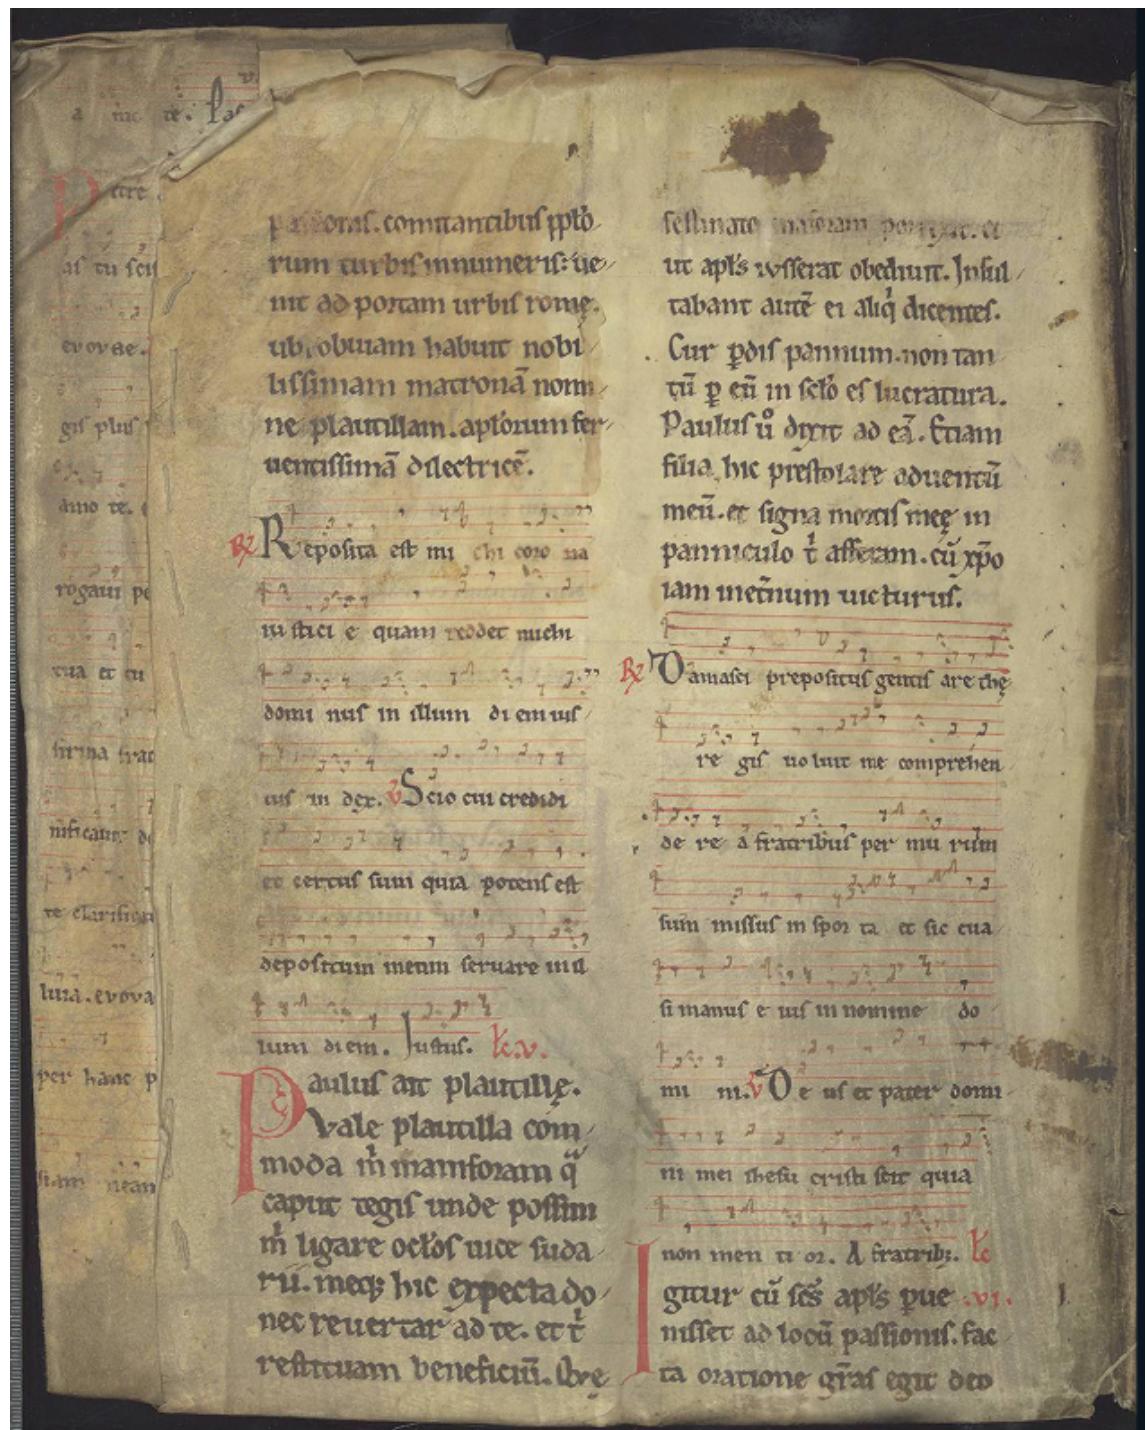 a nic te. Pas
P etre
as tu scis
evovae.
gis plus
amo te.
rogavi pe
tua et tu
firma frat
nificatur do
te clarifica
luia. evova
per hanc p
passionis. comitantibus pplo
rum turbis innumeris: ue
nit ad portam urbis romę.
ubi obuiam habuit nobi
lissimam matronā nomi
ne plautillam. aptorum fer
uentissimā dilectricē.
R Reposita est mi chi coro na
iusticie quam reddet michi
domi nus in illum di em ius
tus iu dex. V Scio cui credidi
et certus sum quia potens est
depositum meum seruare in il
lum diem. Justus. Lc.v.
Paulus ait plautillę.
Vale plautilla com
moda m̄ mamforam q̄
caput tegis unde possim
m̄ ligare oclos uice suda
rii. meq; hic expecta do
nec reuertar ad te. et t̄
restituam beneficiū. Que
festinato maforam porrexit. et
ut apls iusserat obediuit. Insul
tabant autē ei aliq̄ dicentes.
Cur ꝑdis pannum. non tan
tū ꝑ eū in sclo es lucratura.
Paulus ů dixit ad eā. Etiam
filia hic prestolare aduentū
meū. et signa mortis meę in
panniculo t̄ afferam. cū xp̄o
iam met̄num uicturus.
R Damasci prepositus gentis arethę
re gis uoluit me comprehen
de re a fratribus per mu rum
sum missus in spor ta et sic eua
si manus e ius in nomine do
mi ni. V De us et pater domi
ni mei ihesu cristi scit quia
non men ti or. A fratrib;. Lc
Igitur cū scs apls ꝑue .vi.
nisset ad locū passionis. fac
ta oratione gr̄as egit deo